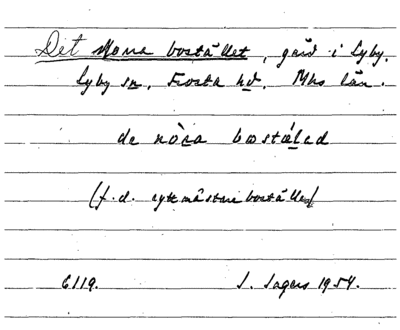 Det Norra bostället, gård i Lyby,
Lyby sn. Frosta hd. Mhs län.
de nòra bostálad
(f.d. ryttmästarebostället)
6119. I. Ingers 1954.